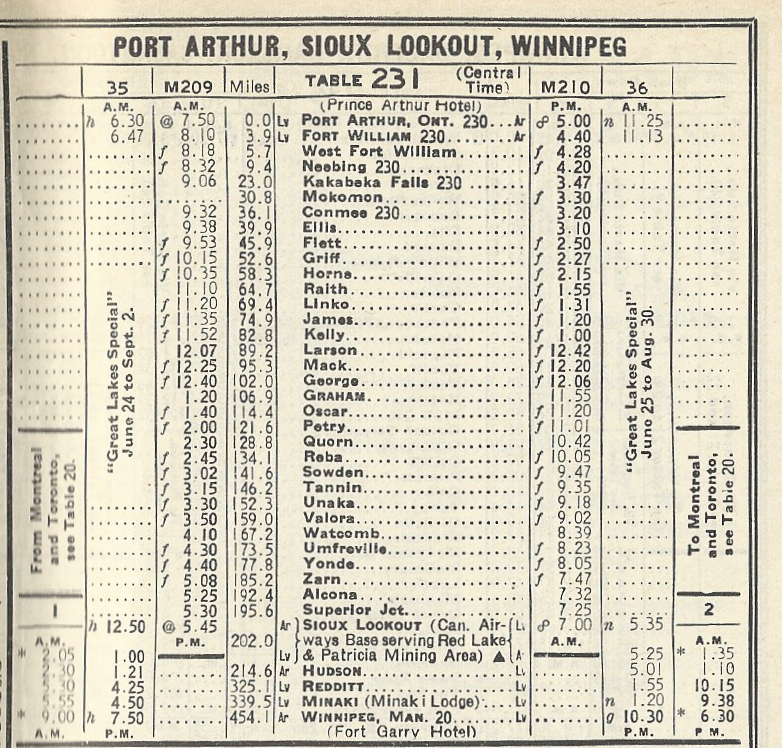 PORT ARTHUR, SIOUX LOOKOUT, WINNIPEG
35 M209 Miles TABLE 231 (Central Time) M210 36
A.M. A.M. (Prince Arthur Hotel) P.M. A.M.
h 6.30 @ 7.50 0.0 Lv PORT ARTHUR, ONT. 230...Ar 5.00 n 11.25
6.47 8.10 3.9 Lv FORT WILLIAM 230........Ar 4.40 11.13
f 8.18 5.7 West Fort William f 4.28
f 8.32 9.4 Neebing 230 f 4.20
9.06 23.0 Kakabeka Falls 230 3.47
30.8 Mokomon f 3.30
9.32 36.1 Conmee 230 3.20
9.38 39.9 Ellis 3.10
f 9.53 45.9 Flett f 2.50
f 10.15 52.6 Griff f 2.27
f 10.35 58.3 Horne f 2.15
11.10 64.7 Raith f 1.55
f 11.20 69.4 Linko f 1.31
f 11.35 74.9 James f 1.20
f 11.52 82.8 Kelly f 1.00
12.07 89.2 Larson f 12.42
f 12.25 95.3 Mack f 12.20
f 12.40 102.0 George f 12.06
1.20 106.9 GRAHAM 11.55
f 1.40 114.4 Oscar f 11.20
f 2.00 121.6 Petry f 11.01
2.30 128.8 Quorn 10.42
f 2.45 134.1 Reba f 10.05
f 3.02 141.6 Sowden f 9.47
f 3.15 146.2 Tannin f 9.35
f 3.30 152.3 Unaka f 9.18
f 3.50 159.0 Valora f 9.02
4.10 167.2 Watcomb 8.39
f 4.30 173.5 Umfreville f 8.23
f 4.40 177.8 Yonde f 8.05
f 5.08 185.2 Zarn f 7.47
5.25 192.4 Alcona 7.32
5.30 195.6 Superior Jct. 7.25
h 12.50 @ 5.45 Ar SIOUX LOOKOUT (Can. Air- Lv 7.00 n 5.35
A.M. P.M. 202.0 ways Base serving Red Lake A.M. A.M.
1.00 Lv & Patricia Mining Area) ▲ Ar 5.25 * 1.35
1.21 214.6 Ar HUDSON Lv 5.01 1.10
4.25 325.1 Lv REDDITT Lv 1.55 10.15
4.50 339.5 Lv MINAKI (Minaki Lodge) Lv n 1.20 9.38
* 9.00 h 7.50 454.1 Ar WINNIPEG, MAN. 20 Lv g 10.30 * 6.30
A.M. P.M. (Fort Garry Hotel) P.M. P M.
"Great Lakes Special"
June 24 to Sept. 2.
"Great Lakes Special"
June 25 to Aug. 30.
From Montreal
and Toronto,
see Table 20.
1
To Montreal
and Toronto,
see Table 20.
2